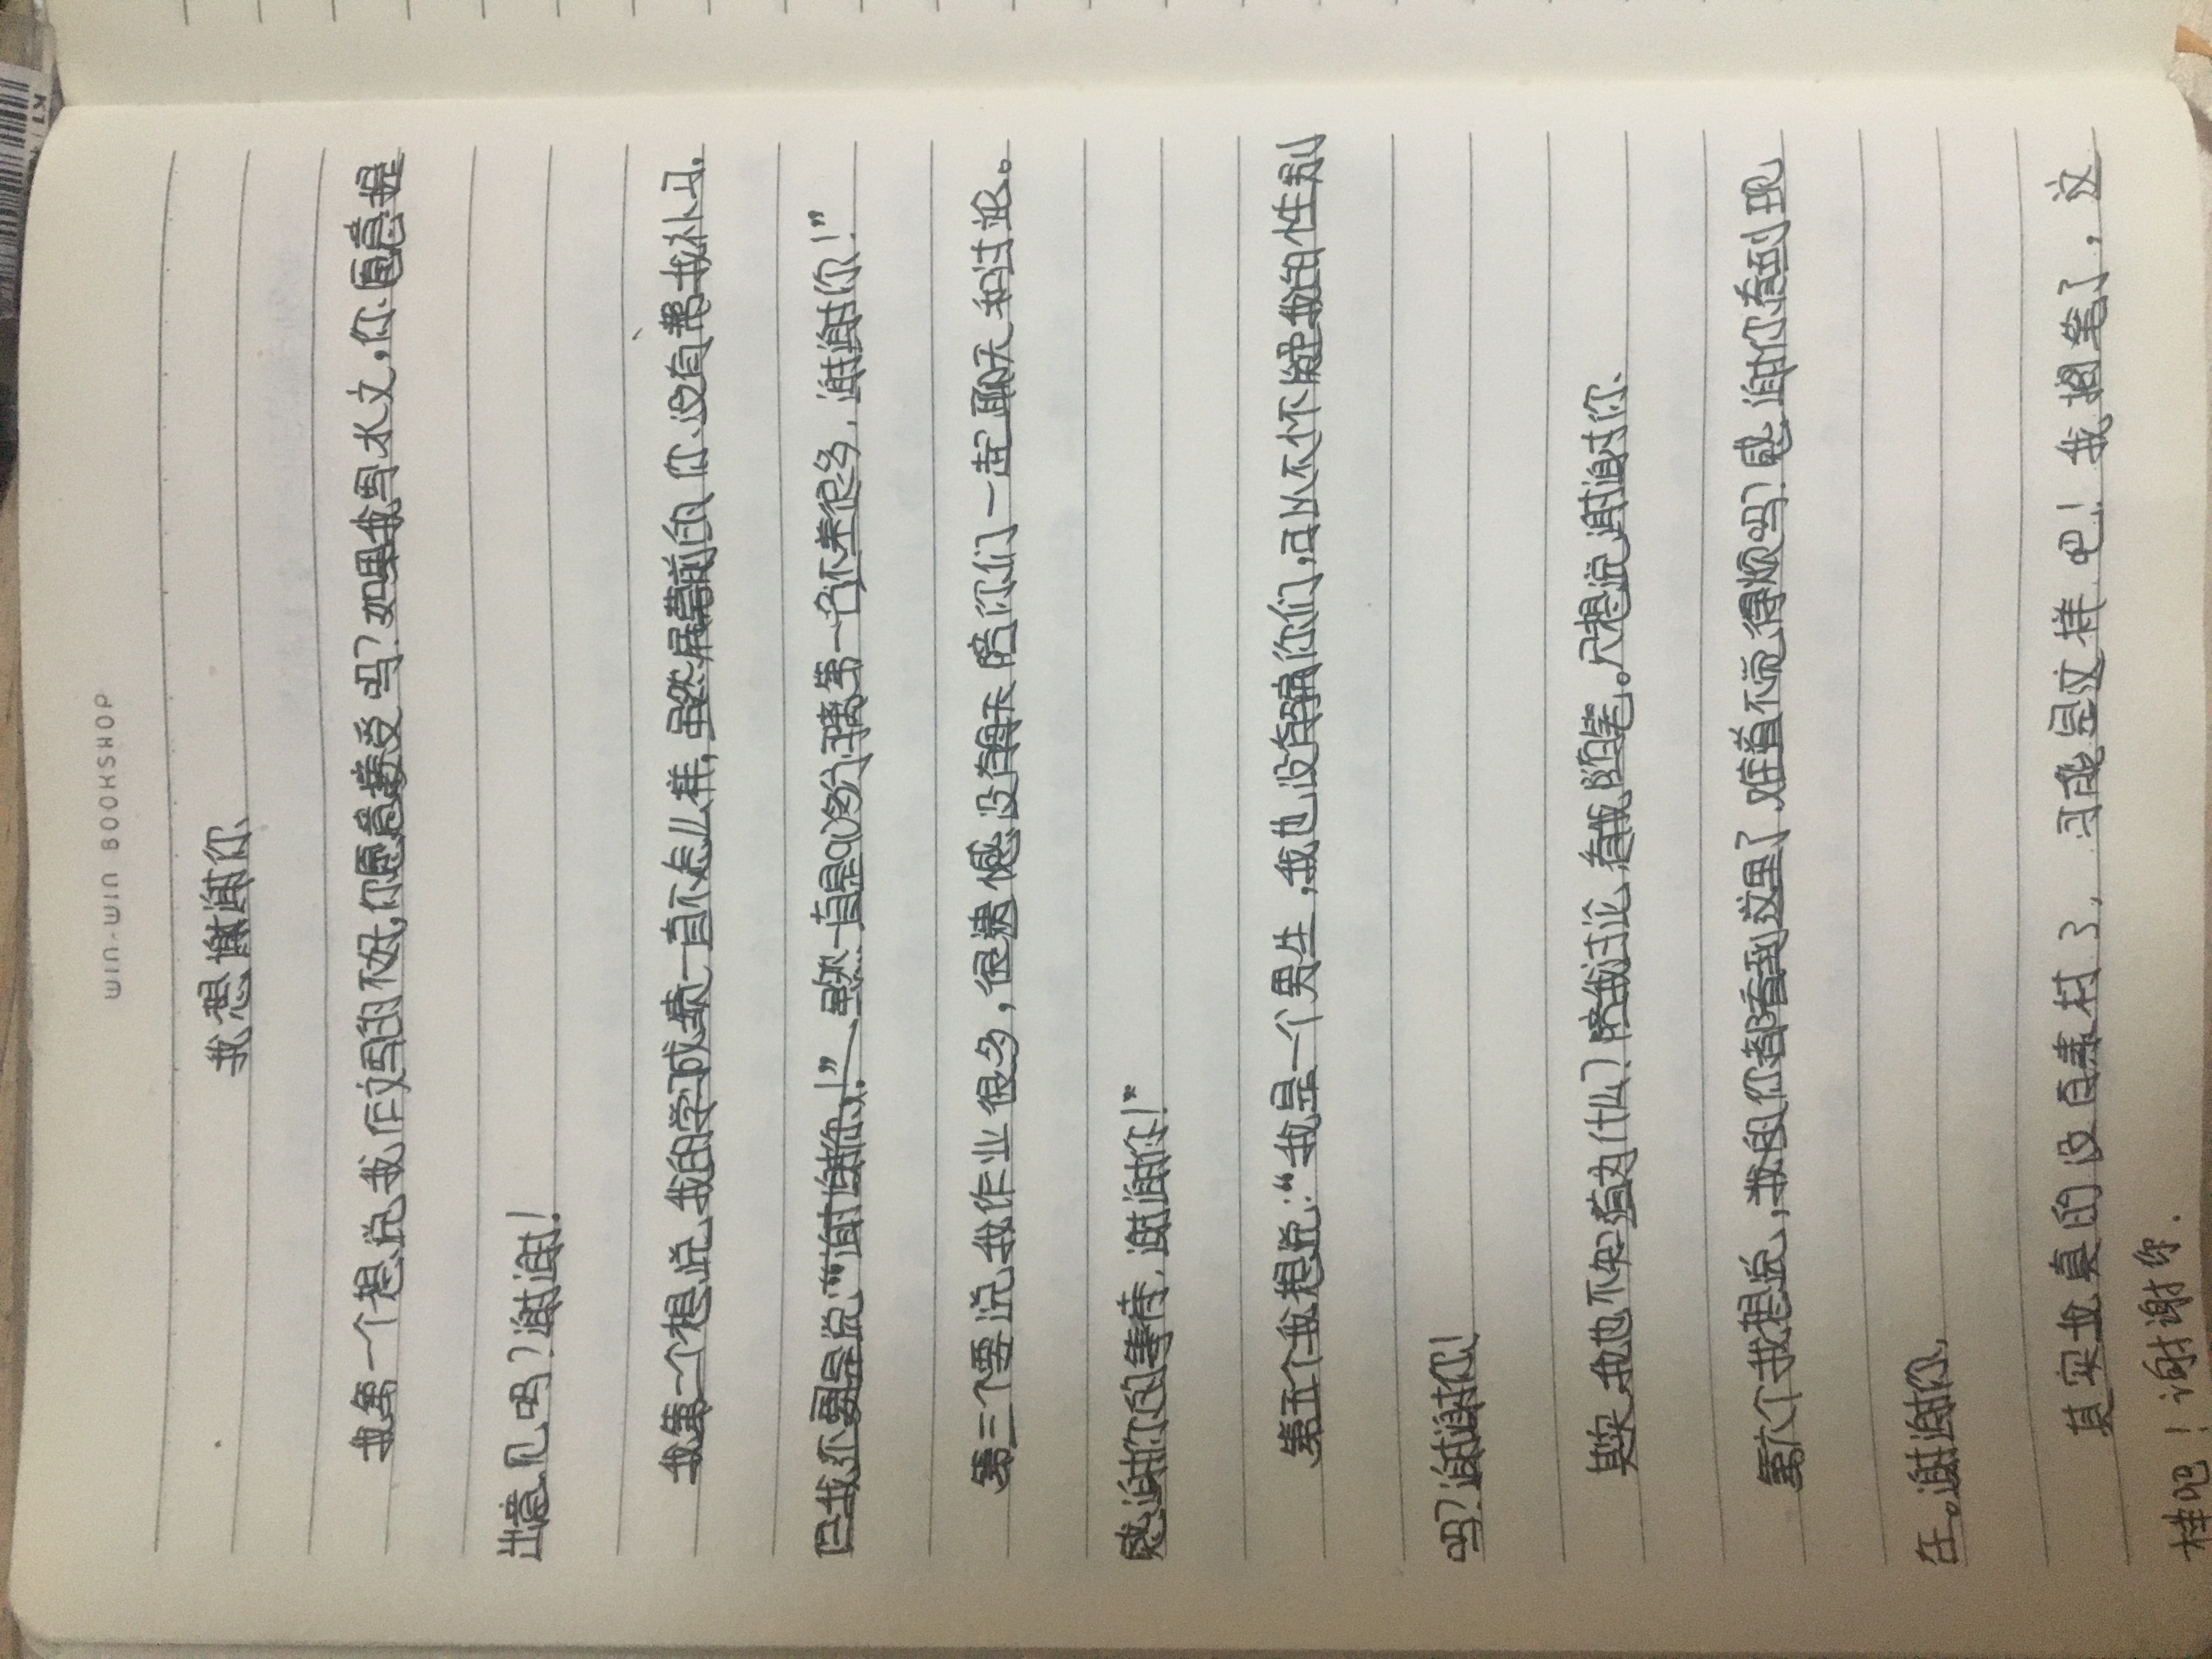 WIN-WIN BOOKSHOP
我想谢谢你、
我第一个想说我作文写的不好,你愿意接受吗?如果我写水文,你愿意提
出意见吗?谢谢!
我第二个想说、我的学习成绩一直不怎么样,虽然屏幕前的你没有帮我补习,
但我还要是说“谢谢你!”虽然一直是90多分,离第一名还差很多,谢谢你!”
第三个要说、我作业很多,很遗憾没有每天陪你们一起聊天和讨论。
感谢你的等待,谢谢你!”
第五个我想说:“我是一个男生,我也没有骗你们,可从不怀疑我的性别
吗?谢谢你!
其实、我也不知道为什么?陪我讨论、看我随笔。只想说谢谢你、
第六个我想说,我的你都看到这里了、难道不觉得烦吗?感谢你看到现
在。谢谢你、
其实我真的没有素材了,可能是这样吧!我搁笔了,这
样吧!谢谢你.
KT